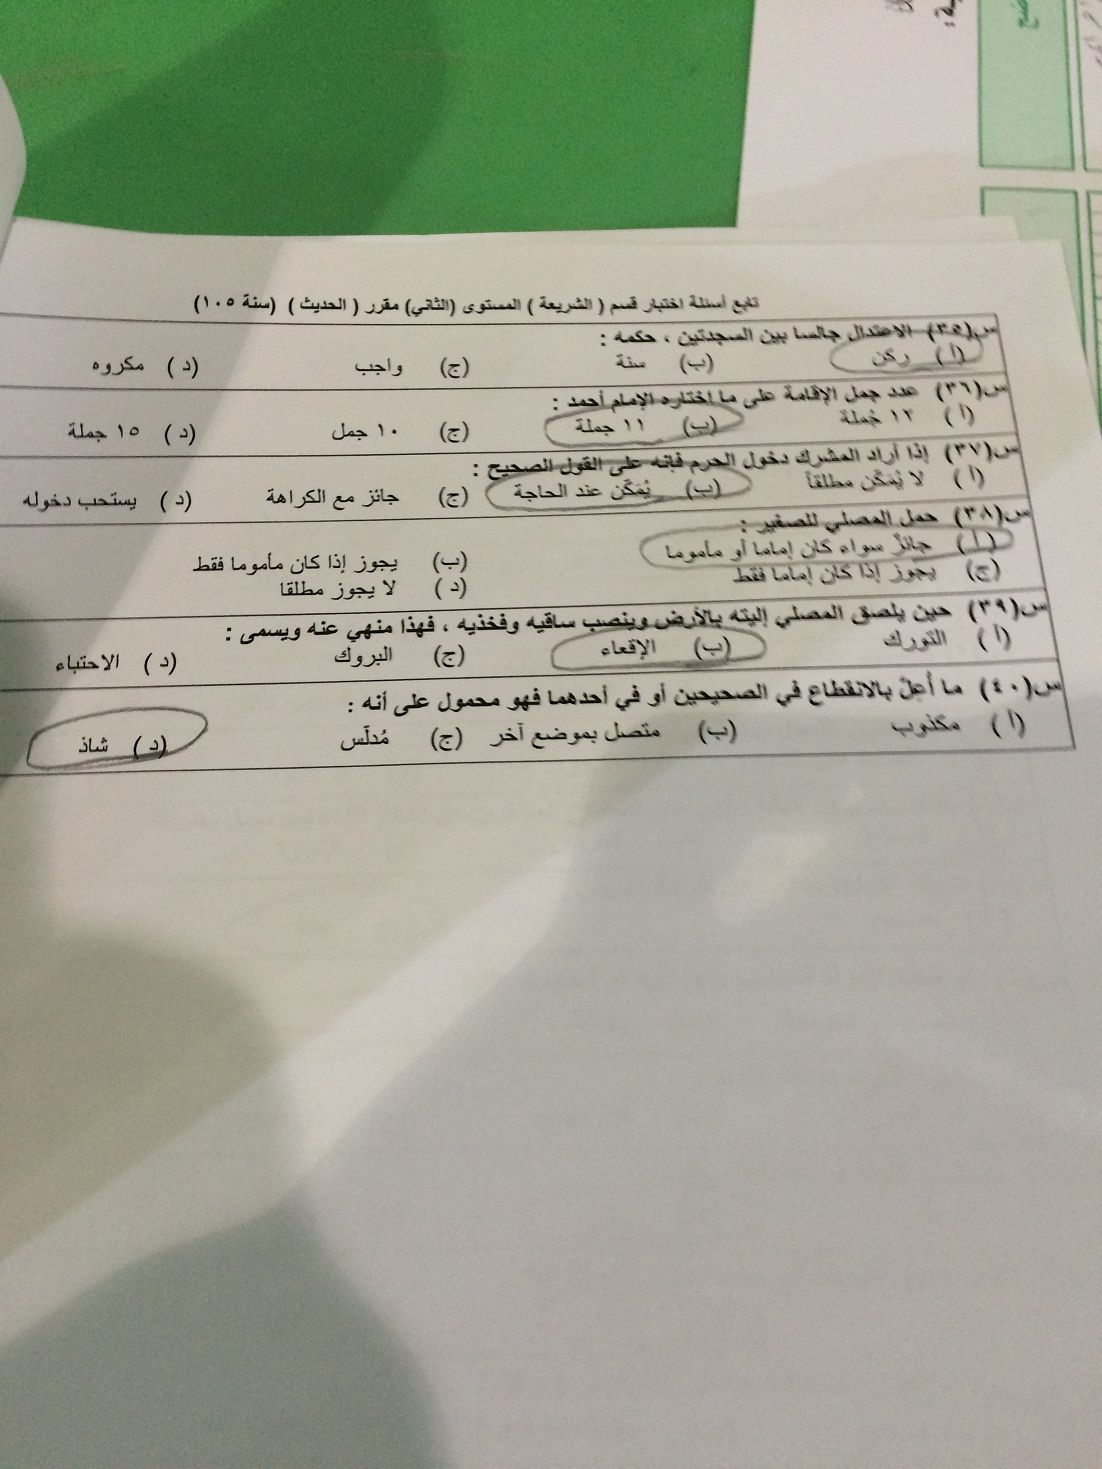 تابع أسئلة اختبار قسم ( الشريعة ) المستوى (الثاني) مقرر ( الحديث ) (سنة ١٠٥)
س(٣٥) الاعتدال جالسا بين السجدتين ، حكمه :
(أ) ركن (ب) سنة (ج) واجب (د) مكروه
س(٣٦) عدد جمل الإقامة على ما اختاره الإمام أحمد :
(أ) ١٢ جملة (ب) ١١ جملة (ج) ١٠ جمل (د) ١٥ جملة
س(٣٧) إذا أراد المشرك دخول الحرم فإنه على القول الصحيح :
(أ) لا يُمَكَّن مطلقاً (ب) يُمَكَّن عند الحاجة (ج) جائز مع الكراهة (د) يستحب دخوله
س(٣٨) حمل المصلي للصغير :
(أ) جائزٌ سواء كان إماما أو مأموما (ب) يجوز إذا كان مأموما فقط
(ج) يجوز إذا كان إماما فقط (د) لا يجوز مطلقا
س(٣٩) حين يلصق المصلي إليته بالأرض وينصب ساقيه وفخذيه ، فهذا منهي عنه ويسمى :
(أ) التورك (ب) الإقعاء (ج) البروك (د) الاحتباء
س(٤٠) ما أُعِلّ بالانقطاع في الصحيحين أو في أحدهما فهو محمول على أنه :
(أ) مكذوب (ب) متصل بموضع آخر (ج) مُدلّس (د) شاذ